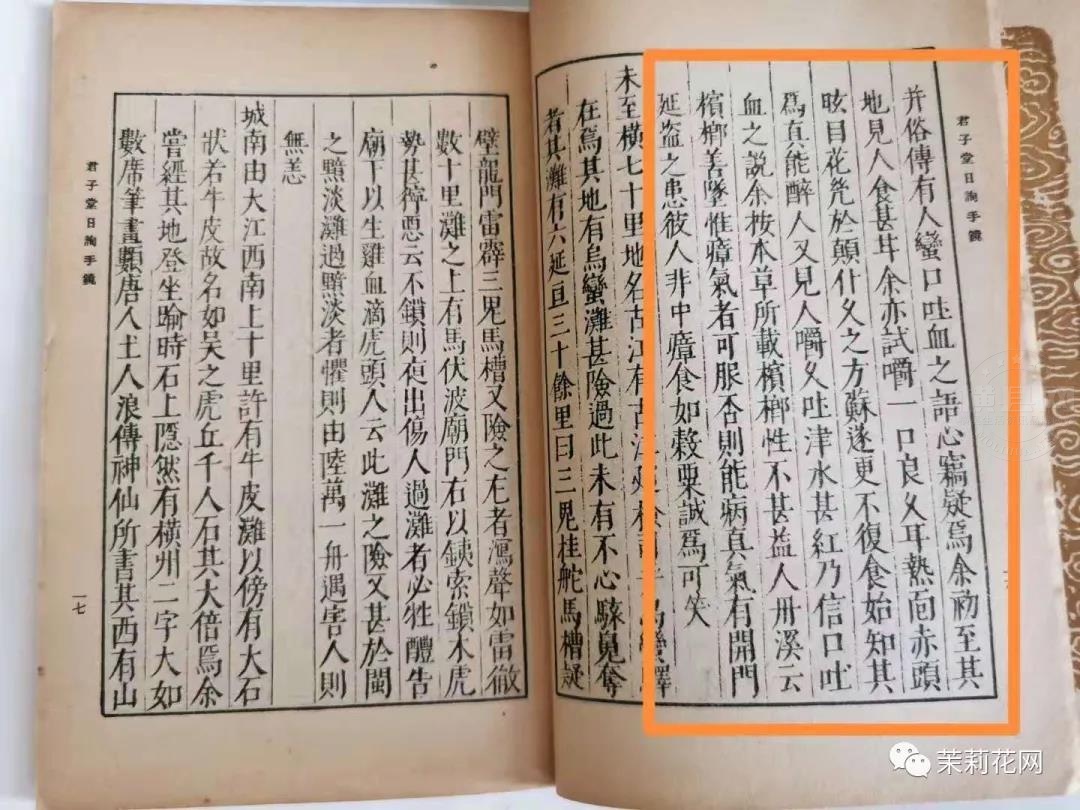 君子堂日詢手鏡
并俗傳有人蠻口吐血之語心竊疑焉余初至其
地見人食甚甘余亦試嚼一口良久耳熱面赤頭
眩目花幾於顛仆久之方蘇遂更不復食始知其
爲真能醉人又見人嚼久吐津水甚紅乃信口吐
血之説余按本草所載檳榔性不甚益人丹溪云
檳榔善墜惟瘴氣者可服否則能病真氣有開門
延盜之患彼人非中瘴食如穀粟誠爲可笑
未至橫七十里地名古江有古江
在焉其地有烏蠻灘甚險過此未有不心駭鬼奪
者其灘有六延亘三十餘里曰三鬼桂舵馬槽疑
壁龍門雷霹三鬼馬槽又險之尤者瀉聲如雷徹
數十里灘之上有馬伏波廟門右以鉄索鎖木虎
勢甚獰惡云不鎖則夜出傷人過灘者必牲醴告
廟下以生雞血滴虎頭人云此灘之險又甚於閩
之黯淡灘過黯淡者懼則由陸萬一舟遇害人則
無恙
城南由大江西南上十里許有牛皮灘以傍有大石
狀若牛皮故名如吴之虎丘千人石其大倍焉余
嘗經其地登坐踰時石上隱然有橫州二字大如
數席筆畫類唐人土人浪傳神仙所書其西有山
君子堂日詢手鏡
一七
茉莉花网